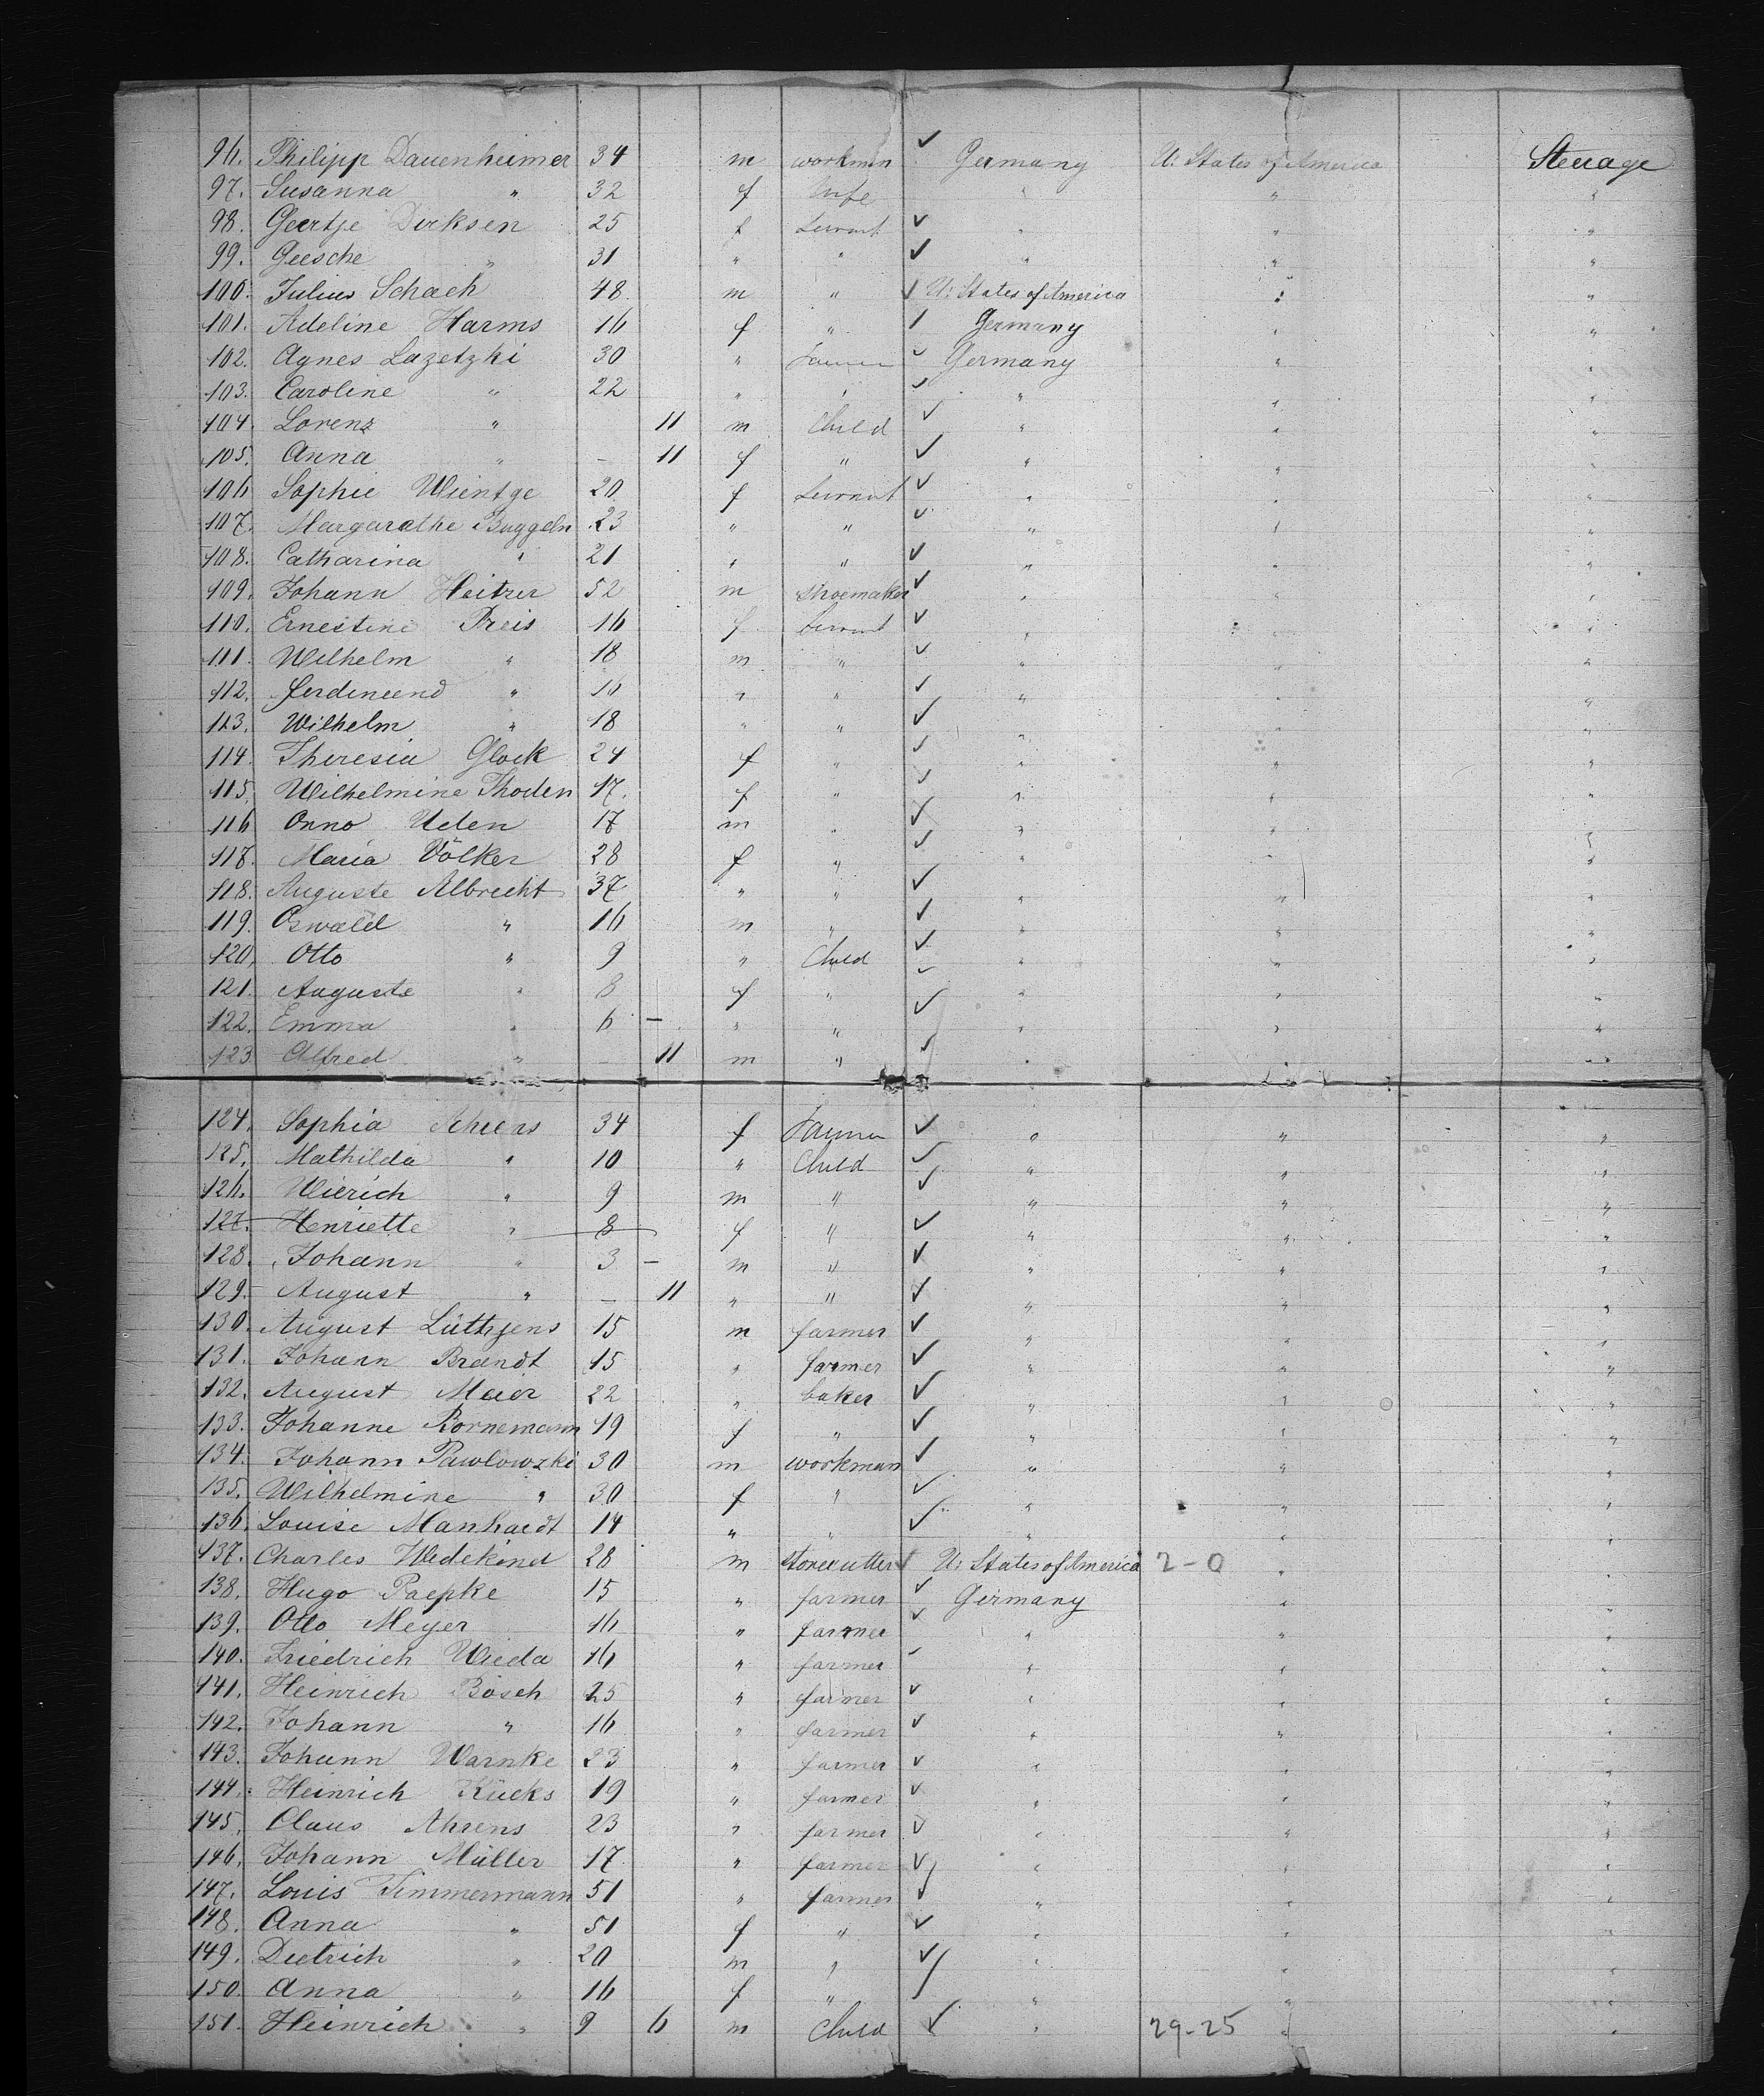 96. Philipp Dauenheimer 34 m workman ✓ Germany U: States of America Steerage
97. Susanna " 32 f Wife " " "
98. Geertje Dirksen 25 f Servant ✓ " " "
99. Geesche " 31 " " ✓ " " "
100. Julius Schach 48 m " ✓ U: States of America " "
101. Adeline Harms 16 f " ✓ Germany " "
102. Agnes Lazetzki 30 " ✓ Germany " "
103. Caroline " 22 " " ✓ " " "
104. Lorenz " 11 m Child ✓ " " "
105. Anna " – 11 f " ✓ " " "
106 Sophie Wientge 20 f Servant ✓ " " "
107. Margarethe Buggeln 23 " " ✓ " " "
108. Catharina " 21 " " ✓ " " "
109. Johann Heitzer 52 m Shoemaker ✓ " " "
110. Ernestine Preis 16 f Servant ✓ " " "
111. Wilhelm " 18 m " ✓ " " "
112. Ferdineend " 16 " " ✓ " " "
113. Wilhelm " 18 " " ✓ " " "
114. Theresia Glock 24 f " ✓ " " "
115. Wilhelmine Thoden 17. f " ✓ " " "
116 Onno Uden 17 m " ✓ " " "
117. Maria Völker 28 f " ✓ " " "
118. Auguste Albrecht 37 " " ✓ " " "
119. Oswald " 16 m " ✓ " " "
120. Otto " 9 " Child ✓ " " "
121. Auguste " 8 f " ✓ " " "
122. Emma " 6 – " " ✓ " " "
123. Alfred " – 11 m " ✓ " " "
124. Sophia Ahrens 34 f ✓ " " "
125. Mathilda " 10 " Child ✓ " " "
126. Wierich " 9 m " ✓ " " "
127. Henriette " 8 f " ✓ " " "
128. Johann " 3 – m " ✓ " " "
129. August " – 11 " " ✓ " " "
130. August Lüthjens 15 m farmer ✓ " " "
131. Johann Brandt 15 " farmer ✓ " " "
132. August Maior 22 " baker ✓ " " "
133. Johanne Bornemann 19 f " ✓ " " "
134. Johann Pawlowzki 30 m workman ✓ " " "
135. Wilhelmine " 30 f " ✓ " " "
136. Louise Manhardt 14 " " ✓ " " "
137. Charles Wedekind 28 m stonecutter ✓ U: States of America 2-0 " "
138. Hugo Paepke 15 " farmer ✓ Germany " "
139. Otto Meyer 16 " farmer ✓ " " "
140. Friedrich Wieda 16 " farmer ✓ " " "
141. Heinrich Bösch 25 " farmer ✓ " " "
142. Johann " 16 " farmer ✓ " " "
143. Johann Warnke 23 " farmer ✓ " " "
144. Heinrich Kücks 19 " farmer ✓ " " "
145. Claus Ahrens 23 " farmer ✓ " " "
146. Johann Müller 17 " farmer ✓ " " "
147. Louis Timmermann 51 " farmer ✓ " " "
148. Anna " 51 f " ✓ " " "
149. Dietrich " 20 m " ✓ " " "
150. Anna " 16 f " ✓ " " "
151. Heinrich " 9 6 m Child ✓ " 29-25 " "